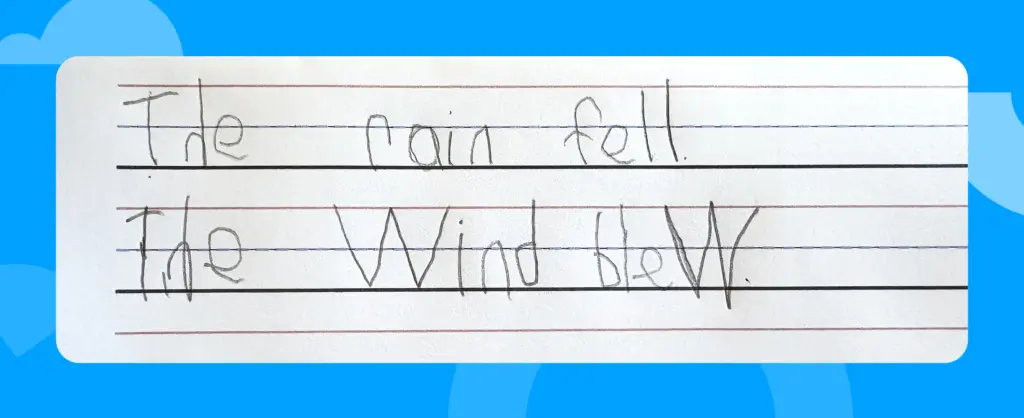 The rain fell.
The Wind bleW.